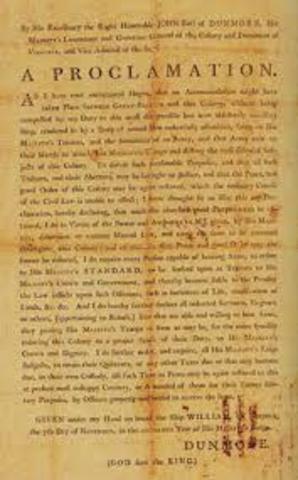 By His Excellency the Right Honorable JOHN Earl of DUNMORE, His
MAJESTY'S Lieutenant and Governor General of the Colony and Dominion of
VIRGINIA, and Vice Admiral of the same.
A PROCLAMATION.
AS I have ever entertained Hopes, that an Accommodation might have
taken Place between GREAT-BRITAIN and this Colony, without being
compelled by my Duty to this most
rendered so by a Body of armed Men unlawfully assembled, firing on His
MAJESTY'S Tenders, and the formation of an Army, and that Army now on
their March to attack His MAJESTY'S Troops and destroy the well disposed Sub-
jects of this Colony. To defeat such Purposes, and that all such
Traitors, and their Abettors, may be brought to Justice, and that the Peace, and
good Order of this Colony may be again restored, which the ordinary Course
of the Civil Law is unable to effect; I have thought fit to issue this my Pro-
clamation, hereby declaring, that until the aforesaid good Purposes can be
obtained, I do in Virtue of the Power and Authority to ME given, by His Majes-
ty, determine to execute Martial Law, and cause the same to be executed
this Colony; and that Peace and good Order may the
sooner be restored, I do require every Person capable of bearing Arms, to resort
to His MAJESTY'S STANDARD, or be looked upon as Traitors to His
MAJESTY'S Crown and Government, and thereby become liable to the Penalty
the Law inflicts upon such Offences; such as forfeiture of Life, confiscation of
Lands, &c. &c. And I do hereby further declare all indented Servants, Negroes,
or others, (appertaining to Rebels,) free that are able and willing to bear Arms,
they joining His MAJESTY'S Troops as soon as may be, for the more speedily
reducing this Colony to a proper Sense of their Duty, to His MAJESTY'S
Crown and Dignity. I do further order, and require, all His MAJESTY'S Liege
Subjects, to retain their Quitrents, or any other Taxes due or that may become
due, in their own Custody, till such Time as Peace may be again restored to this
at present most unhappy Country, or demanded of them for their former salu-
tary Purposes, by Officers properly authorised to receive the same.
GIVEN under my Hand on board the Ship WILLIAM,
the 7th Day of NOVEMBER, in the Year of His MAJESTY'S Reign.
DUNMORE.
(GOD save the KING.)